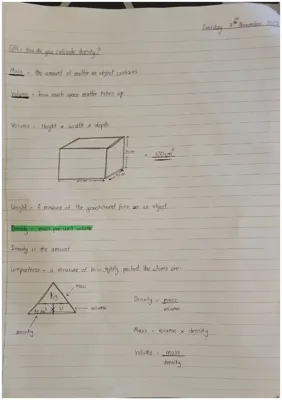 Tuesday 8th November 2022
Q11: How do you calculate density?
Mass - the amount of matter an object contains
Volume - how much space matter takes up.
Volume = Height x width x depth
= 500cm³
Weight - A measure of the gravitational force on an object.
Density - mass per unit volume
Density is the amount
compactness - a measure of how tightly packed the atoms are
mass
kg
V
volume
density
Density = mass
volume
Mass = volume x density
Volume = mass
density